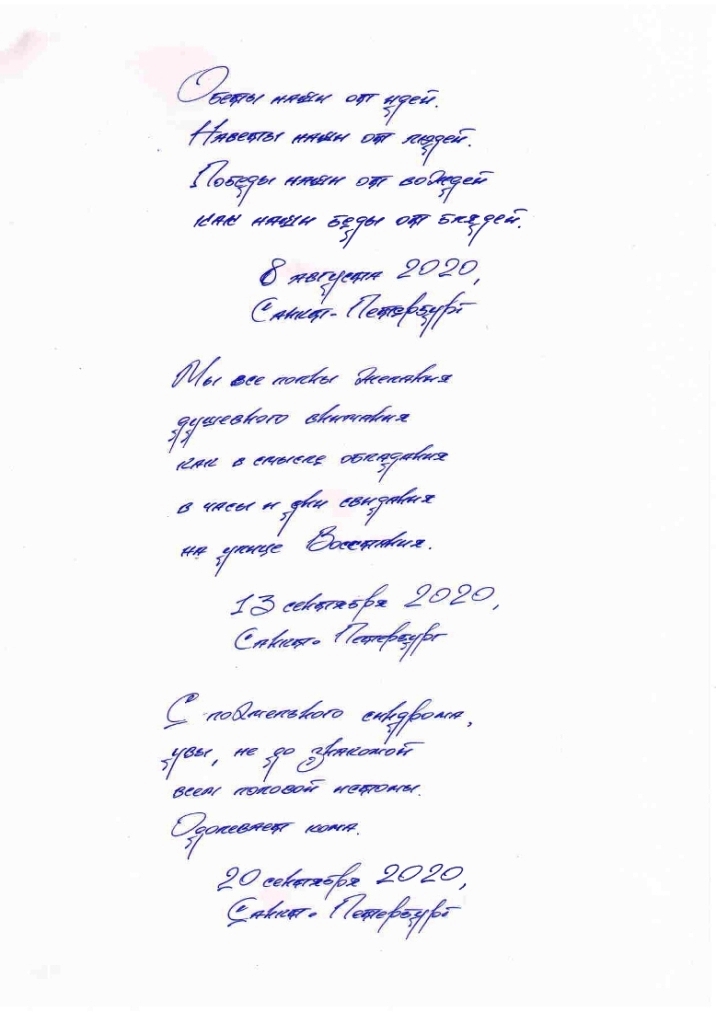 Обеты наши от идей.
Наветы наши от людей.
Победы наши от вождей
как наши беды от блядей.
8 августа 2020,
Санкт-Петербург
Мы все полны желания
душевного внимания
как в смысле обладания
в часы и дни свидания
на улице Восстания.
13 сентября 2020,
Санкт-Петербург
С похмельного синдрома,
увы, не до знакомой
всем половой истомы.
Одолевает кома.
20 сентября 2020,
Санкт-Петербург